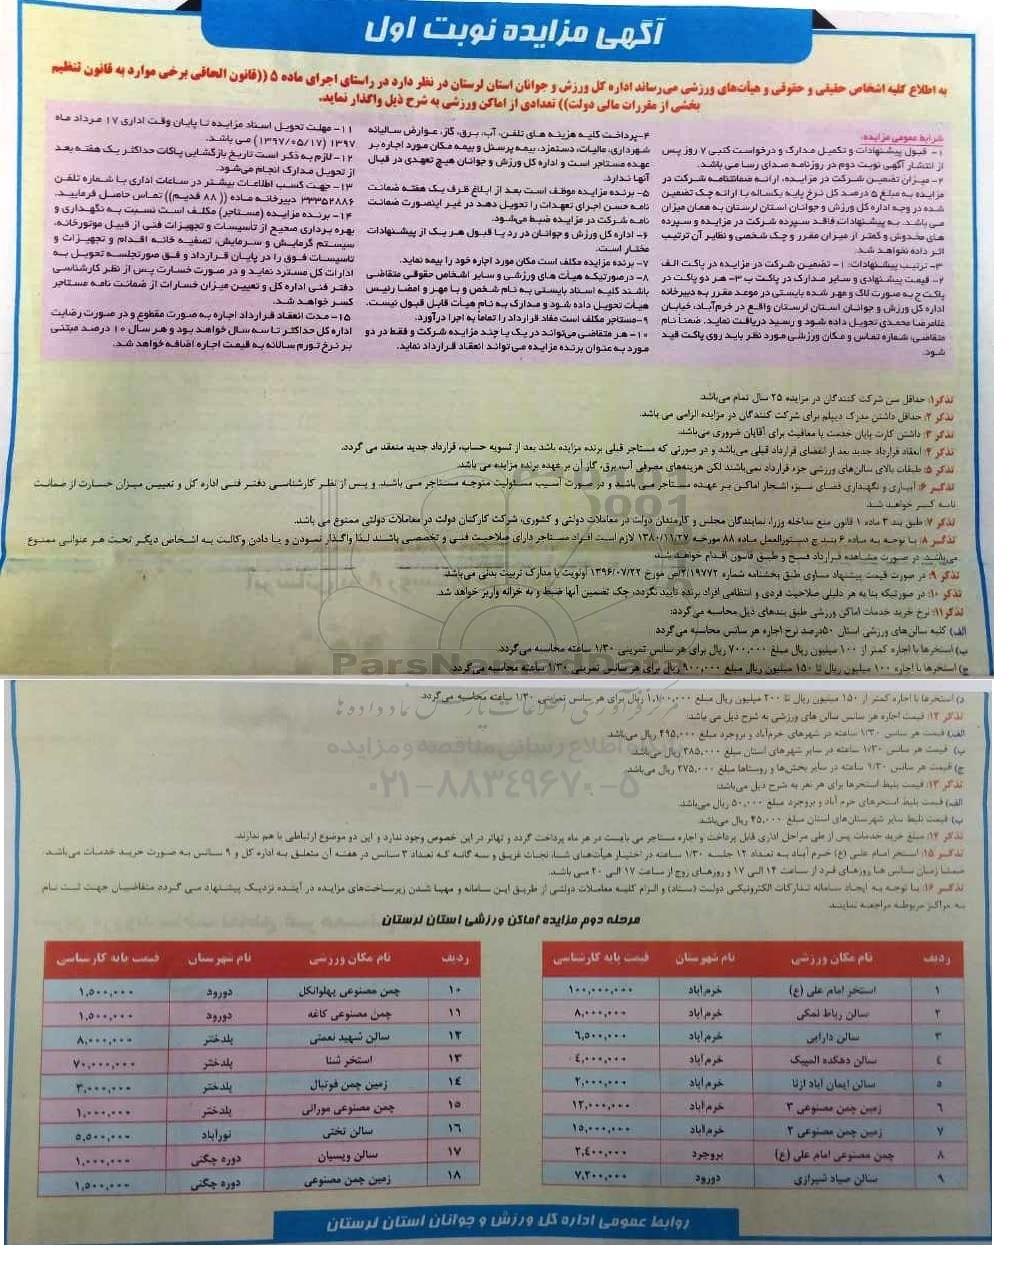 آگهی مزایده نوبت اول
به اطلاع کلیه اشخاص حقیقی و حقوقی و هیأت‌های ورزشی می‌رساند اداره کل ورزش و جوانان استان لرستان در نظر دارد در راستای اجرای ماده ۵ ((قانون الحاقی برخی موارد به قانون تنظیم
بخشی از مقررات مالی دولت)) تعدادی از اماکن ورزشی به شرح ذیل واگذار نماید.
شرایط عمومی مزایده:
۱- قبول پیشنهادات و تکمیل مدارک و درخواست کتبی ۷ روز پس
از انتشار آگهی نوبت دوم در روزنامه صدای رسا می‌باشد.
۲- میزان تضمین شرکت در مزایده، ارائه ضمانتنامه شرکت در
مزایده به مبلغ ۵ درصد کل نرخ پایه یکساله یا ارائه چک تضمین
شده در وجه اداره کل ورزش و جوانان استان لرستان به همان میزان
می باشد. به پیشنهادات فاقد سپرده شرکت در مزایده و سپرده
های مخدوش و کمتر از میزان مقرر و چک شخصی و نظایر آن ترتیب
اثر داده نخواهد شد.
۳- ترتیب پیشنهادات: ۱- تضمین شرکت در مزایده در پاکت الف
۲- قیمت پیشنهادی و سایر مدارک در پاکت ب ۳- هر دو پاکت در
پاکت ج به صورت لاک و مهر شده بایستی در موعد مقرر به دبیرخانه
اداره کل ورزش و جوانان استان لرستان واقع در خرم‌آباد، خیابان
غلامرضا محمدی تحویل داده شود و رسید دریافت نماید. ضمنا نام
متقاضی، شماره تماس و مکان ورزشی مورد نظر باید روی پاکت قید
شود.
۴- پرداخت کلیه هزینه های تلفن، آب، برق، گاز، عوارض سالیانه
شهرداری، مالیات، دستمزد، بیمه پرسنل و بیمه مکان مورد اجاره بر
عهده مستاجر است و اداره کل ورزش و جوانان هیچ تعهدی در قبال
آنها ندارد.
۵- برنده مزایده موظف است بعد از ابلاغ ظرف یک هفته ضمانت
نامه حسن اجرای تعهدات را تحویل دهد در غیر اینصورت ضمانت
نامه شرکت در مزایده ضبط می‌شود.
۶- اداره کل ورزش و جوانان در رد یا قبول هر یک از پیشنهادات
مختار است.
۷- برنده مزایده مکلف است مکان مورد اجاره خود را بیمه نماید.
۸- درصورتیکه هیأت های ورزشی و سایر اشخاص حقوقی متقاضی
باشند کلیه اسناد بایستی به نام شخص و با مهر و امضا رئیس
هیأت تحویل داده شود و مدارک به نام هیأت قابل قبول نیست.
۹- مستاجر مکلف است مفاد قرارداد را تماماً به اجرا درآورد.
۱۰- هر متقاضی می‌تواند در یک یا چند مزایده شرکت و فقط در دو
مورد به عنوان برنده مزایده می تواند انعقاد قرارداد نماید.
۱۱- مهلت تحویل اسناد مزایده تا پایان وقت اداری ۱۷ مرداد ماه
۱۳۹۷ (۱۳۹۷/۰۵/۱۷) می باشد.
۱۲- لازم به ذکر است تاریخ بازگشایی پاکات حداکثر یک هفته بعد
از تحویل مدارک انجام می‌شود.
۱۳- جهت کسب اطلاعات بیشتر در ساعات اداری با شماره تلفن
۳۳۳۵۲۸۸۶ دبیرخانه ماده (( ۸۸ قدیم)) تماس حاصل فرمایید.
۱۴- برنده مزایده (مستاجر) مکلف است نسبت به نگهداری و
بهره برداری صحیح از تأسیسات و تجهیزات فنی از قبیل موتورخانه،
سیستم گرمایش و سرمایش، تصفیه خانه اقدام و تجهیزات و
تاسیسات فوق را در پایان قرارداد و فق صورتجلسه تحویل به
ادارات کل مسترد نماید و در صورت خسارت پس از نظر کارشناسی
دفتر فنی اداره کل و تعیین میزان خسارات از ضمانت نامه مستاجر
کسر خواهد شد.
۱۵- مدت انعقاد قرارداد اجاره به صورت مقطوع و در صورت رضایت
اداره کل حداکثر تا سه سال خواهد بود و هر سال ۱۰ درصد مبتنی
بر نرخ تورم سالانه به قیمت اجاره اضافه خواهد شد.
تذکر۱: حداقل سن شرکت کنندگان در مزایده ۲۵ سال تمام می‌باشد.
تذکر ۲: حداقل داشتن مدرک دیپلم برای شرکت کنندگان در مزایده الزامی می باشد.
تذکر ۳: داشتن کارت پایان خدمت یا معافیت برای آقایان ضروری می‌باشد.
تذکر ۴: انعقاد قرارداد جدید بعد از انقضای قرارداد قبلی می‌باشد و در صورتی که مستاجر قبلی برنده مزایده باشد بعد از تسویه حساب، قرارداد جدید منعقد می گردد.
تذکر ۵: طبقات بالای سالن‌های ورزشی جزء قرارداد نمی‌باشند لکن هزینه‌های مصرفی آب، برق، گاز آن بر عهده برنده مزایده می باشد.
تذکر ۶: آبیاری و نگهداری فضای سبز، اشجار اماکن بر عهده مستاجر می باشد و در صورت آسیب مسئولیت متوجه مستاجر می باشد. و پس از نظر کارشناسی دفتر فنی اداره کل و تعیین میزان خسارت از ضمانت
نامه کسر خواهد شد.
تذکر ۷: طبق بند ۳ ماده ۱ قانون منع مداخله وزرا، نمایندگان مجلس و کارمندان دولت در معاملات دولتی و کشوری، شرکت کارکنان دولت در معاملات دولتی ممنوع می باشد.
تذکر ۸: با توجه به ماده ۶ بند ج دستورالعمل ماده ۸۸ مورخه ۱۳۸۰/۱۱/۲۷ لازم است افراد مستاجر دارای صلاحیت فنی و تخصصی باشند لذا واگذار نمودن و یا دادن وکالت به اشخاص دیگر تحت هر عنوانی ممنوع
می‌باشد. در صورت مشاهده قرارداد فسخ و طبق قانون اقدام خواهد شد.
تذکر ۹: در صورت قیمت پیشنهاد مساوی طبق بخشنامه شماره ۲/۱۹۷۷۲/ص مورخ ۱۳۹۶/۰۷/۲۲ اولویت با مدارک تربیت بدنی می‌باشد.
تذکر ۱۰: در صورتیکه بنا به هر دلیلی صلاحیت فردی و انتظامی افراد برنده تایید نگردد، چک تضمین آنها ضبط و به خزانه واریز خواهد شد.
تذکر۱۱: نرخ خرید خدمات اماکن ورزشی طبق بندهای ذیل محاسبه می‌گردد:
الف) کلیه سالن‌های ورزشی استان ۵۰درصد نرخ اجاره هر سانس محاسبه می گردد
ب) استخرها با اجاره کمتر از ۱۰۰ میلیون ریال مبلغ ۷۰۰,۰۰۰ ریال برای هر سانس تمرینی ۱/۳۰ ساعته محاسبه می‌گردد.
ج) استخرها با اجاره ۱۰۰ میلیون ریال تا ۱۵۰ میلیون ریال مبلغ ۹۰۰,۰۰۰ ریال برای هر سانس تمرینی ۱/۳۰ ساعته محاسبه می‌گردد.
ParsNamadData
د) استخرها با اجاره کمتر از ۱۵۰ میلیون ریال تا ۲۰۰ میلیون ریال مبلغ ۱,۱۰۰,۰۰۰ ریال برای هر سانس تمرینی ۱/۳۰ ساعته محاسبه می گردد.
تذکر ۱۲: قیمت اجاره هر سانس سالن های ورزشی به شرح ذیل می باشد:
الف) قیمت هر سانس ۱/۳۰ ساعته در شهرهای خرم‌آباد و بروجرد مبلغ ۴۹۵,۰۰۰ ریال می‌باشد.
ب) قیمت هر سانس ۱/۳۰ ساعته در سایر شهرهای استان مبلغ ۳۸۵,۰۰۰ ریال می‌باشد.
ج) قیمت هر سانس ۱/۳۰ ساعته در سایر بخش‌ها و روستاها مبلغ ۲۷۵,۰۰۰ ریال می‌باشد.
۰۲۱-۸۸۳۴۹۶۷۰-۵
تذکر ۱۳: قیمت بلیط استخرها برای هر نفر به شرح ذیل می‌باشد:
الف) قیمت بلیط استخرهای خرم آباد و بروجرد مبلغ ۵۰,۰۰۰ ریال می‌باشد.
ب) قیمت بلیط سایر شهرستان‌های استان مبلغ ۴۵,۰۰۰ ریال می‌باشد.
تذکر ۱۴: مبلغ خرید خدمات پس از طی مراحل اداری قابل پرداخت و اجاره مستاجر می بایست در هر ماه پرداخت گردد و تهاتر در این خصوص وجود ندارد و این دو موضوع ارتباطی با هم ندارند.
تذکر ۱۵: استخر امام علی (ع) خرم آباد به تعداد ۱۲ جلسه ۱/۳۰ ساعته در اختیار هیأت‌های شنا، نجات غریق و سه گانه که تعداد ۳ سانس در هفته آن متعلق به اداره کل و ۹ سانس به صورت خرید خدمات می‌باشد.
ضمنا زمان سانس ها روزهای فرد از ساعت ۱۴ الی ۱۷ و روزهای زوج از ساعت ۱۷ الی ۲۰ می باشد.
تذکر ۱۶: با توجه به ایجاد سامانه تدارکات الکترونیکی دولت (ستاد) و الزام کلیه معاملات دولتی از طریق این سامانه و مهیا شدن زیرساخت‌های مزایده در آینده نزدیک پیشنهاد می گردد متقاضیان جهت ثبت نام
به مراکز مربوطه مراجعه نمایند.
مرحله دوم مزایده اماکن ورزشی استان لرستان
ردیف نام مکان ورزشی نام شهرستان قیمت پایه کارشناسی
۱ استخر امام علی (ع) خرم‌آباد ۱۰۰,۰۰۰,۰۰۰
۲ سالن رباط نمکی خرم‌آباد ۸,۰۰۰,۰۰۰
۳ سالن دارایی خرم‌آباد ۶,۵۰۰,۰۰۰
۴ سالن دهکده المپیک خرم‌آباد ۴,۰۰۰,۰۰۰
۵ سالن ایمان آباد ازنا خرم‌آباد ۲,۰۰۰,۰۰۰
۶ زمین چمن مصنوعی ۳ خرم‌آباد ۱۲,۰۰۰,۰۰۰
۷ زمین چمن مصنوعی ۲ خرم‌آباد ۱۵,۰۰۰,۰۰۰
۸ چمن مصنوعی امام علی (ع) بروجرد ۲,۴۰۰,۰۰۰
۹ سالن صیاد شیرازی دورود ۷,۲۰۰,۰۰۰
ردیف نام مکان ورزشی نام شهرستان قیمت پایه کارشناسی
۱۰ چمن مصنوعی پهلوانکل دورود ۱,۵۰۰,۰۰۰
۱۱ چمن مصنوعی کاغه دورود ۱,۵۰۰,۰۰۰
۱۲ سالن شهید نعمتی پلدختر ۸,۰۰۰,۰۰۰
۱۳ استخر شنا پلدختر ۷۰,۰۰۰,۰۰۰
۱۴ زمین چمن فوتبال پلدختر ۳,۰۰۰,۰۰۰
۱۵ چمن مصنوعی مورانی پلدختر ۱,۰۰۰,۰۰۰
۱۶ سالن تختی نورآباد ۵,۵۰۰,۰۰۰
۱۷ سالن ویسیان دوره چگنی ۱,۰۰۰,۰۰۰
۱۸ زمین چمن مصنوعی دوره چگنی ۱,۵۰۰,۰۰۰
روابط عمومی اداره کل ورزش و جوانان استان لرستان